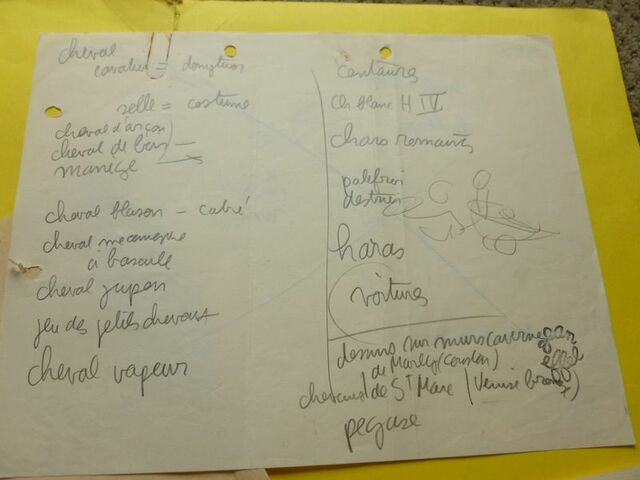 cheval
cavalier = dompteur
selle = costume
cheval d'arçon
cheval de bois —
manège
cheval blason – cabré
cheval mecanique
à bascule
cheval jupon
jeu des petits chevaux
cheval vapeur
centaures
ch blanc H IV
chars romains
palefroi
destrier
haras
voitures
dessins sur murs caverne
de Marly (Coustou)
chevaux de St Marc (Venise bronze)
pegase